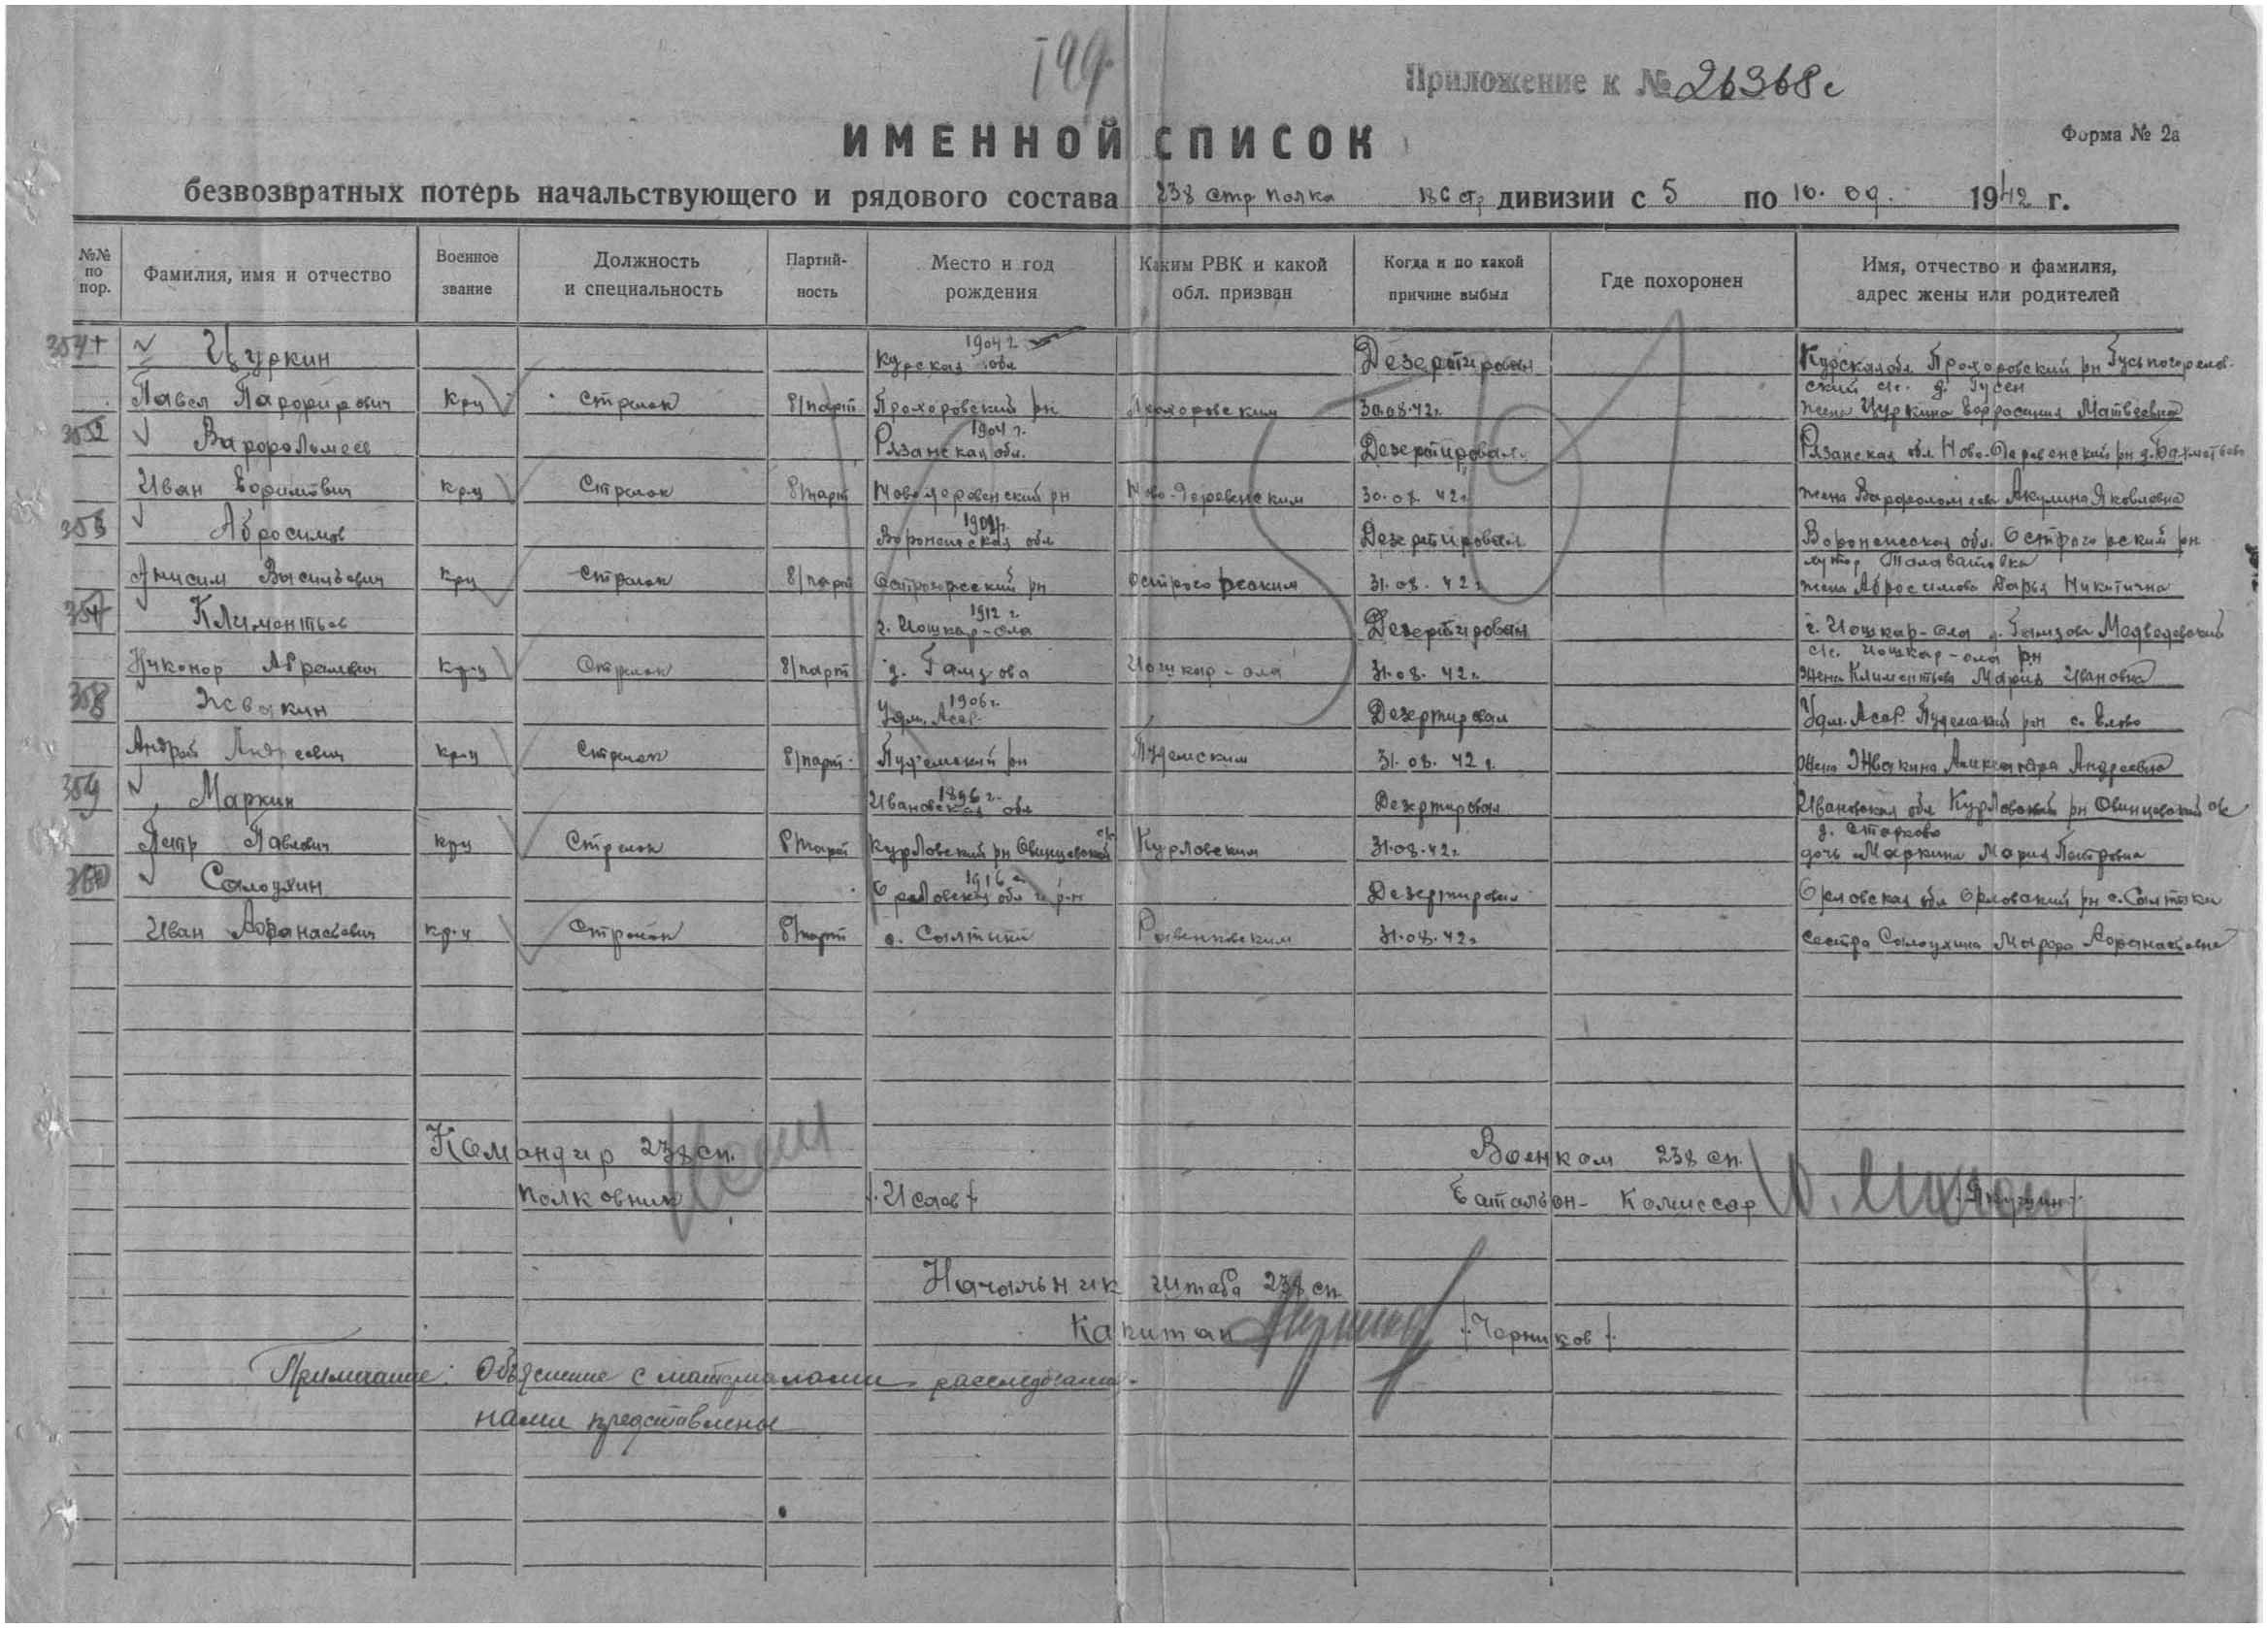 199.
Приложение к № 26368с
ИМЕННОЙ СПИСОК
Форма № 2а
безвозвратных потерь начальствующего и рядового состава 238 стр полка 186 стр дивизии с 5 по 10. 09. 1942 г.
№№ по пор. Фамилия, имя и отчество Военное звание Должность и специальность Партийность Место и год рождения Каким РВК и какой обл. призван Когда и по какой причине выбыл Где похоронен Имя, отчество и фамилия, адрес жены или родителей
1904 г.
Цуркин Курская обл Дезертировал Курская обл Прохоровский рн
ский с/с. д. Гусек
Павел Парфирович кр-ц Стрелок б/парт Прохоровский рн Прохоровским 30.08.42г. жена Цуркина Матвеевна
1904 г.
Варфольмеев Рязанская обл. Дезертировал Рязанская обл Ново-Деревенский рн
Иван Ефимович кр-ц Стрелок б/парт Новодеревенский рн Ново-Деревенским 30.08.42г жена Акулина Яковлевна
Абросимов Воронежская обл Дезертировал Воронежская обл. Острогожский рн
хутор
Анисим Васильевич кр-ц Стрелок б/парт Острогожский рн Острогожским 31.08.42г жена Абросимова Дарья Никитична
1912 г.
Климентьев г. Йошкар-ола Дезертировал г. Йошкар-ола Медведевский
с/с. Йошкар-ола рн
Никонор кр-ц Стрелок б/парт д. Йошкар-ола 31.08.42г. Жена Климентьева Мария Ивановна
1906 г.
Жвакин Удм. Асср. Дезертировал Удм. Асср Пудемский рн с.
Андрей Андреевич кр-ц Стрелок б/парт Пудемский рн Пудемским 31.08.42г. Жена Жвакина Александра Андреевна
1896 г.
Маркин Ивановская обл Дезертировал Ивановская обл Курловский рн Овинцевский с/с
д. Старково
Петр Павлович кр-ц Стрелок б/парт Курловский рн Овинцевский с/с Курловским 31.08.42г дочь Маркина Мария Петровна
1916 г.
Салоухин Орловская обл Дезертировал Орловская обл Орловский рн с. Салтыки
Иван Афанасьевич кр-ц Стрелок б/парт с. Салтыки Ровеньковским 31.08.42г сестра Салоухина Афанасьевна
Командир 238 сп. Военком 238 сп.
Полковник /.Исаев/. Батальон- Комиссар
Начальник штаба 238 сп.
Капитан /.Черников/.
Примечание: Объяснение с материалами расследования
нами представлены